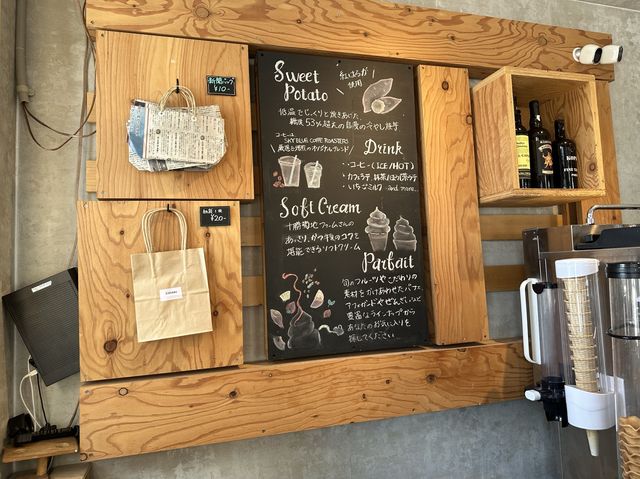 新聞バッグ
¥10-
紙袋1枚
¥20-
Sweet
Potato
紅はるか
使用
低温でじっくりと焼きあげた
糖度53%超えの自慢の冷やし焼き芋
コーヒーは
SKY BLUE COFFEE ROASTERS
Drink
・コーヒー(ICE/HOT)
・カフェラテ、抹茶/ほうじ茶ラテ
・いちごミルク and more...
Soft Cream
十勝菊地ファームさんの
あっさり、かつ千夜のコクを
堪能できるソフトクリーム
Parfait
旬のフルーツやこだわりの
素材をかけあわせたパフェ、
アフォガードやぜんざいなど
豊富なラインナップから
あなたのお気に入りを
探してください